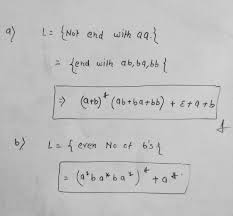 a) L = {Not end with aa.}
= {end with ab, ba, bb}
⇒ (a+b)* (ab+ba+bb) + ε+a+b
b) L = { even No of b's }
= (a* b a* b a*)* + a*.